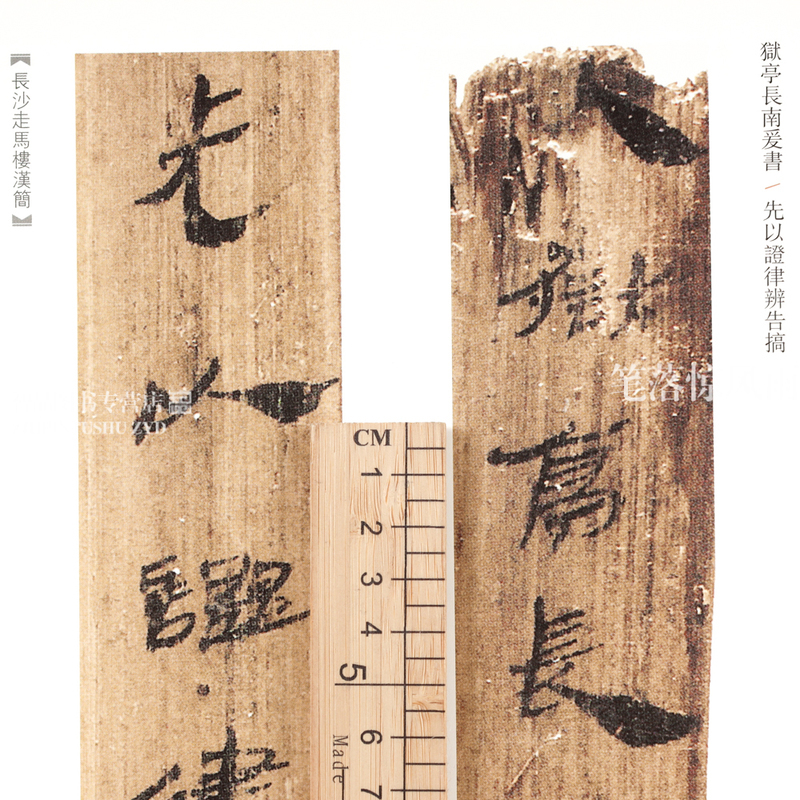 獄亭長南爰書 / 先以證律辨告搞
獄亭長
先以證律
【長沙走馬樓漢簡】
CM
1
2
3
4
5
6
7
Made
笔落惊
书专营店
USHU ZYD